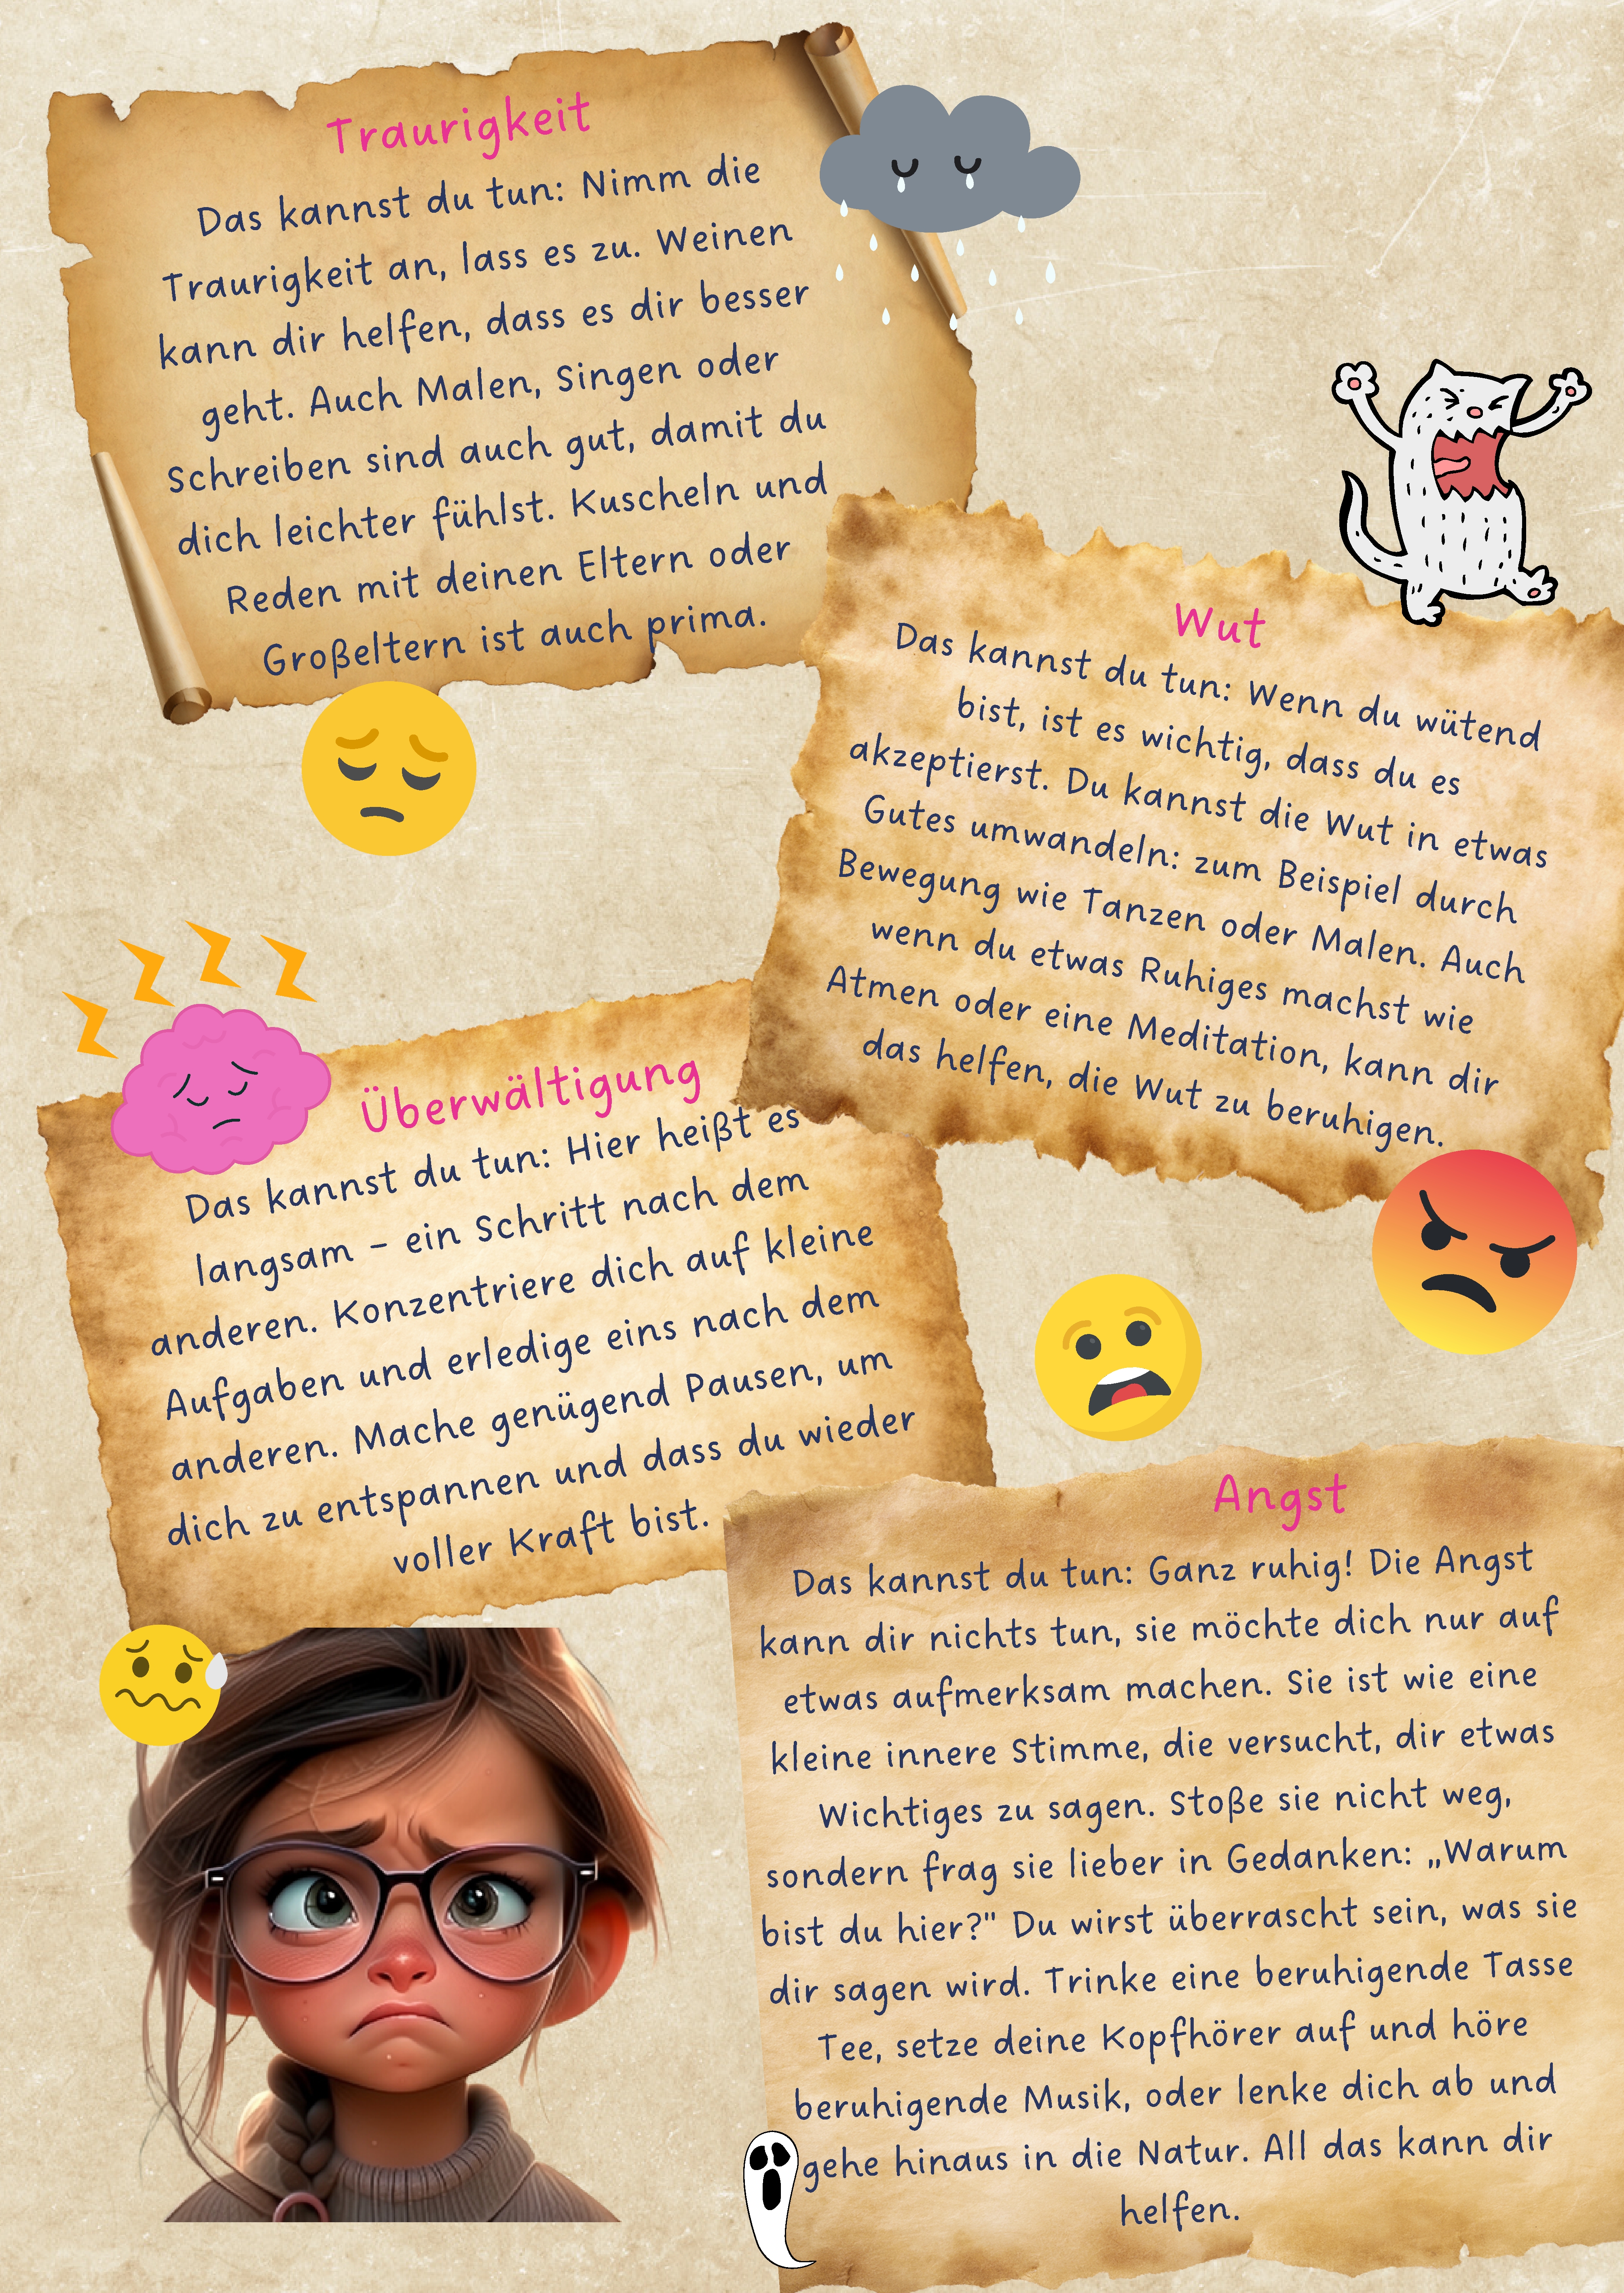 Traurigkeit
Das kannst du tun: Nimm die
Traurigkeit an, lass es zu. Weinen
kann dir helfen, dass es dir besser
geht. Auch Malen, Singen oder
Schreiben sind auch gut, damit du
dich leichter fühlst. Kuscheln und
Reden mit deinen Eltern oder
Großeltern ist auch prima.
Wut
Das kannst du tun: Wenn du wütend
bist, ist es wichtig, dass du es
akzeptierst. Du kannst die Wut in etwas
Gutes umwandeln: zum Beispiel durch
Bewegung wie Tanzen oder Malen. Auch
wenn du etwas Ruhiges machst wie
Atmen oder eine Meditation, kann dir
das helfen, die Wut zu beruhigen.
Überwältigung
Das kannst du tun: Hier heißt es
langsam – ein Schritt nach dem
anderen. Konzentriere dich auf kleine
Aufgaben und erledige eins nach dem
anderen. Mache genügend Pausen, um
dich zu entspannen und dass du wieder
voller Kraft bist.
Angst
Das kannst du tun: Ganz ruhig! Die Angst
kann dir nichts tun, sie möchte dich nur auf
etwas aufmerksam machen. Sie ist wie eine
kleine innere Stimme, die versucht, dir etwas
Wichtiges zu sagen. Stoße sie nicht weg,
sondern frag sie lieber in Gedanken: „Warum
bist du hier?" Du wirst überrascht sein, was sie
dir sagen wird. Trinke eine beruhigende Tasse
Tee, setze deine Kopfhörer auf und höre
beruhigende Musik, oder lenke dich ab und
gehe hinaus in die Natur. All das kann dir
helfen.